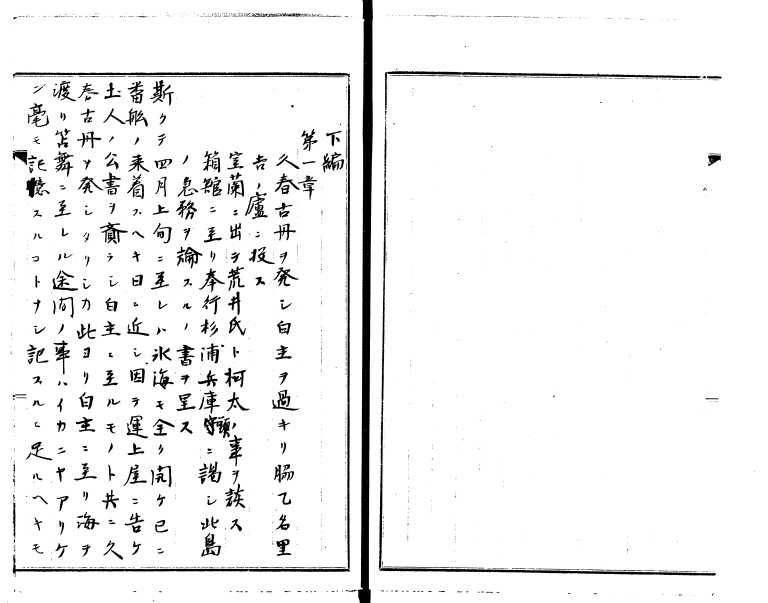 下編
第一章
久春古丹ヲ発シ白主ヲ過キリ脇乙名里
吉ノ廬ニ投ス
室蘭ニ出テ荒井氏ト柯太ノ事ヲ談ス
箱館ニ至リ奉行杉浦兵庫頭ニ謁シ此島
ノ急務ヲ論スルノ書ヲ呈ス
斯クテ四月上旬ニ至レハ氷海モ全ク開ケ已ニ
番船ノ来着スヘキ日ニ近シ因テ運上屋ニ告ケ
土人ノ公書ヲ齎ラシ白主ニ至ルモノト共ニ久
春古丹ヲ発シタリシカ此ヨリ白主ニ至リ海ヲ
渡リ苫舞ニ至レル途間ノ事ハイカニヤアリケ
ン毫モ記憶スルコトナシ記スルニ足ルヘキモ